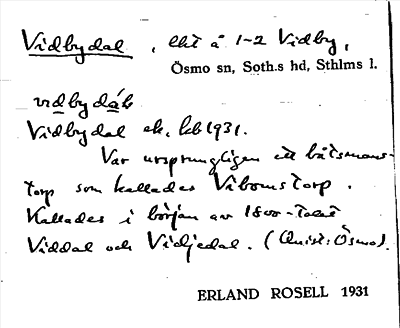 Vidbydal, lht å 1-2 Vidby,
Ösmo sn, Soth.s hd, Sthlms l.
vidbydáls
Vidbydal ek. kb 1931.
Var ursprungligen ett båtsmans-
torp som kallades Vibomstorp.
Kallades i början av 1800-talet
Viddal och Vidjedal. (Antst: Ösmo).
ERLAND ROSELL 1931